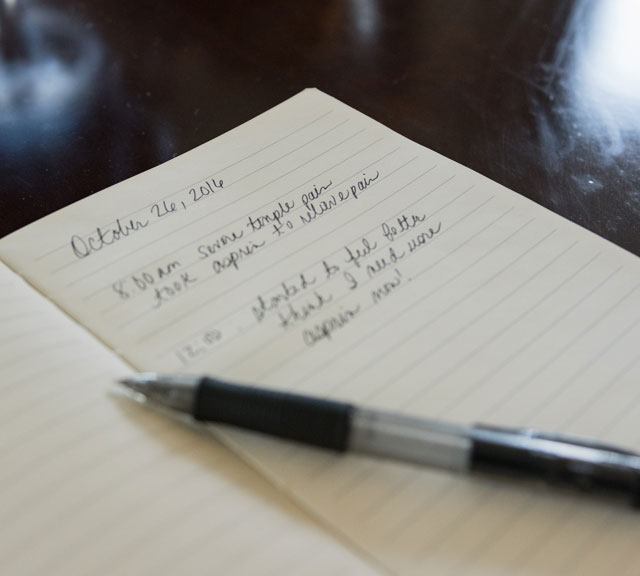 October 26, 2016
8:00am severe temple pain
took aspirin to releave pain
12:00 started to feel better
think I need more
aspirin now!